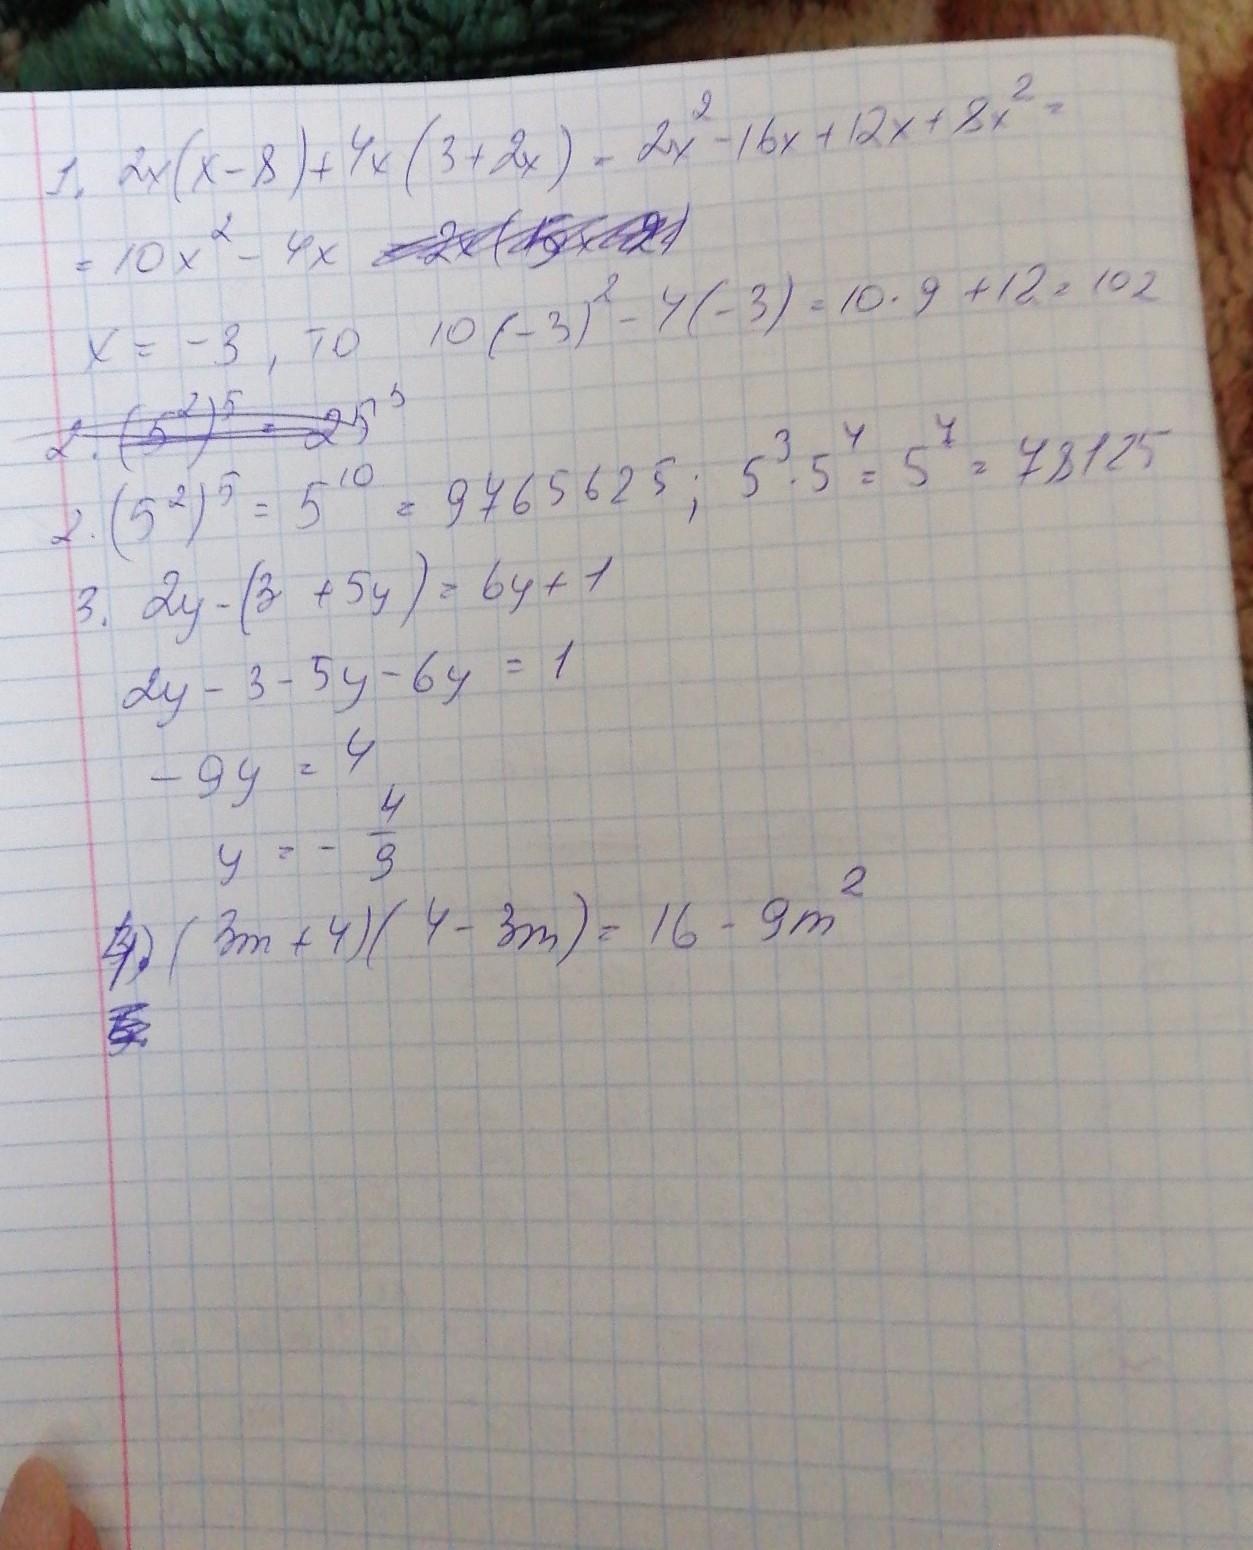 1. 2x(x-8)+4x(3+2x) = 2x²-16x+12x+8x² =
= 10x² - 4x
x = -3, то 10(-3)² - 4(-3) = 10·9 +12 = 102
2. (5²)⁵ = 25⁵
2. (5²)⁵ = 5¹⁰ = 9765625; 5³·5⁴ = 5⁷ = 78125
3. 2y-(3+5y) = 6y+1
2y - 3 - 5y - 6y = 1
-9y = 4
y = - 4/9
4. (3m+4)(4-3m) = 16 - 9m²